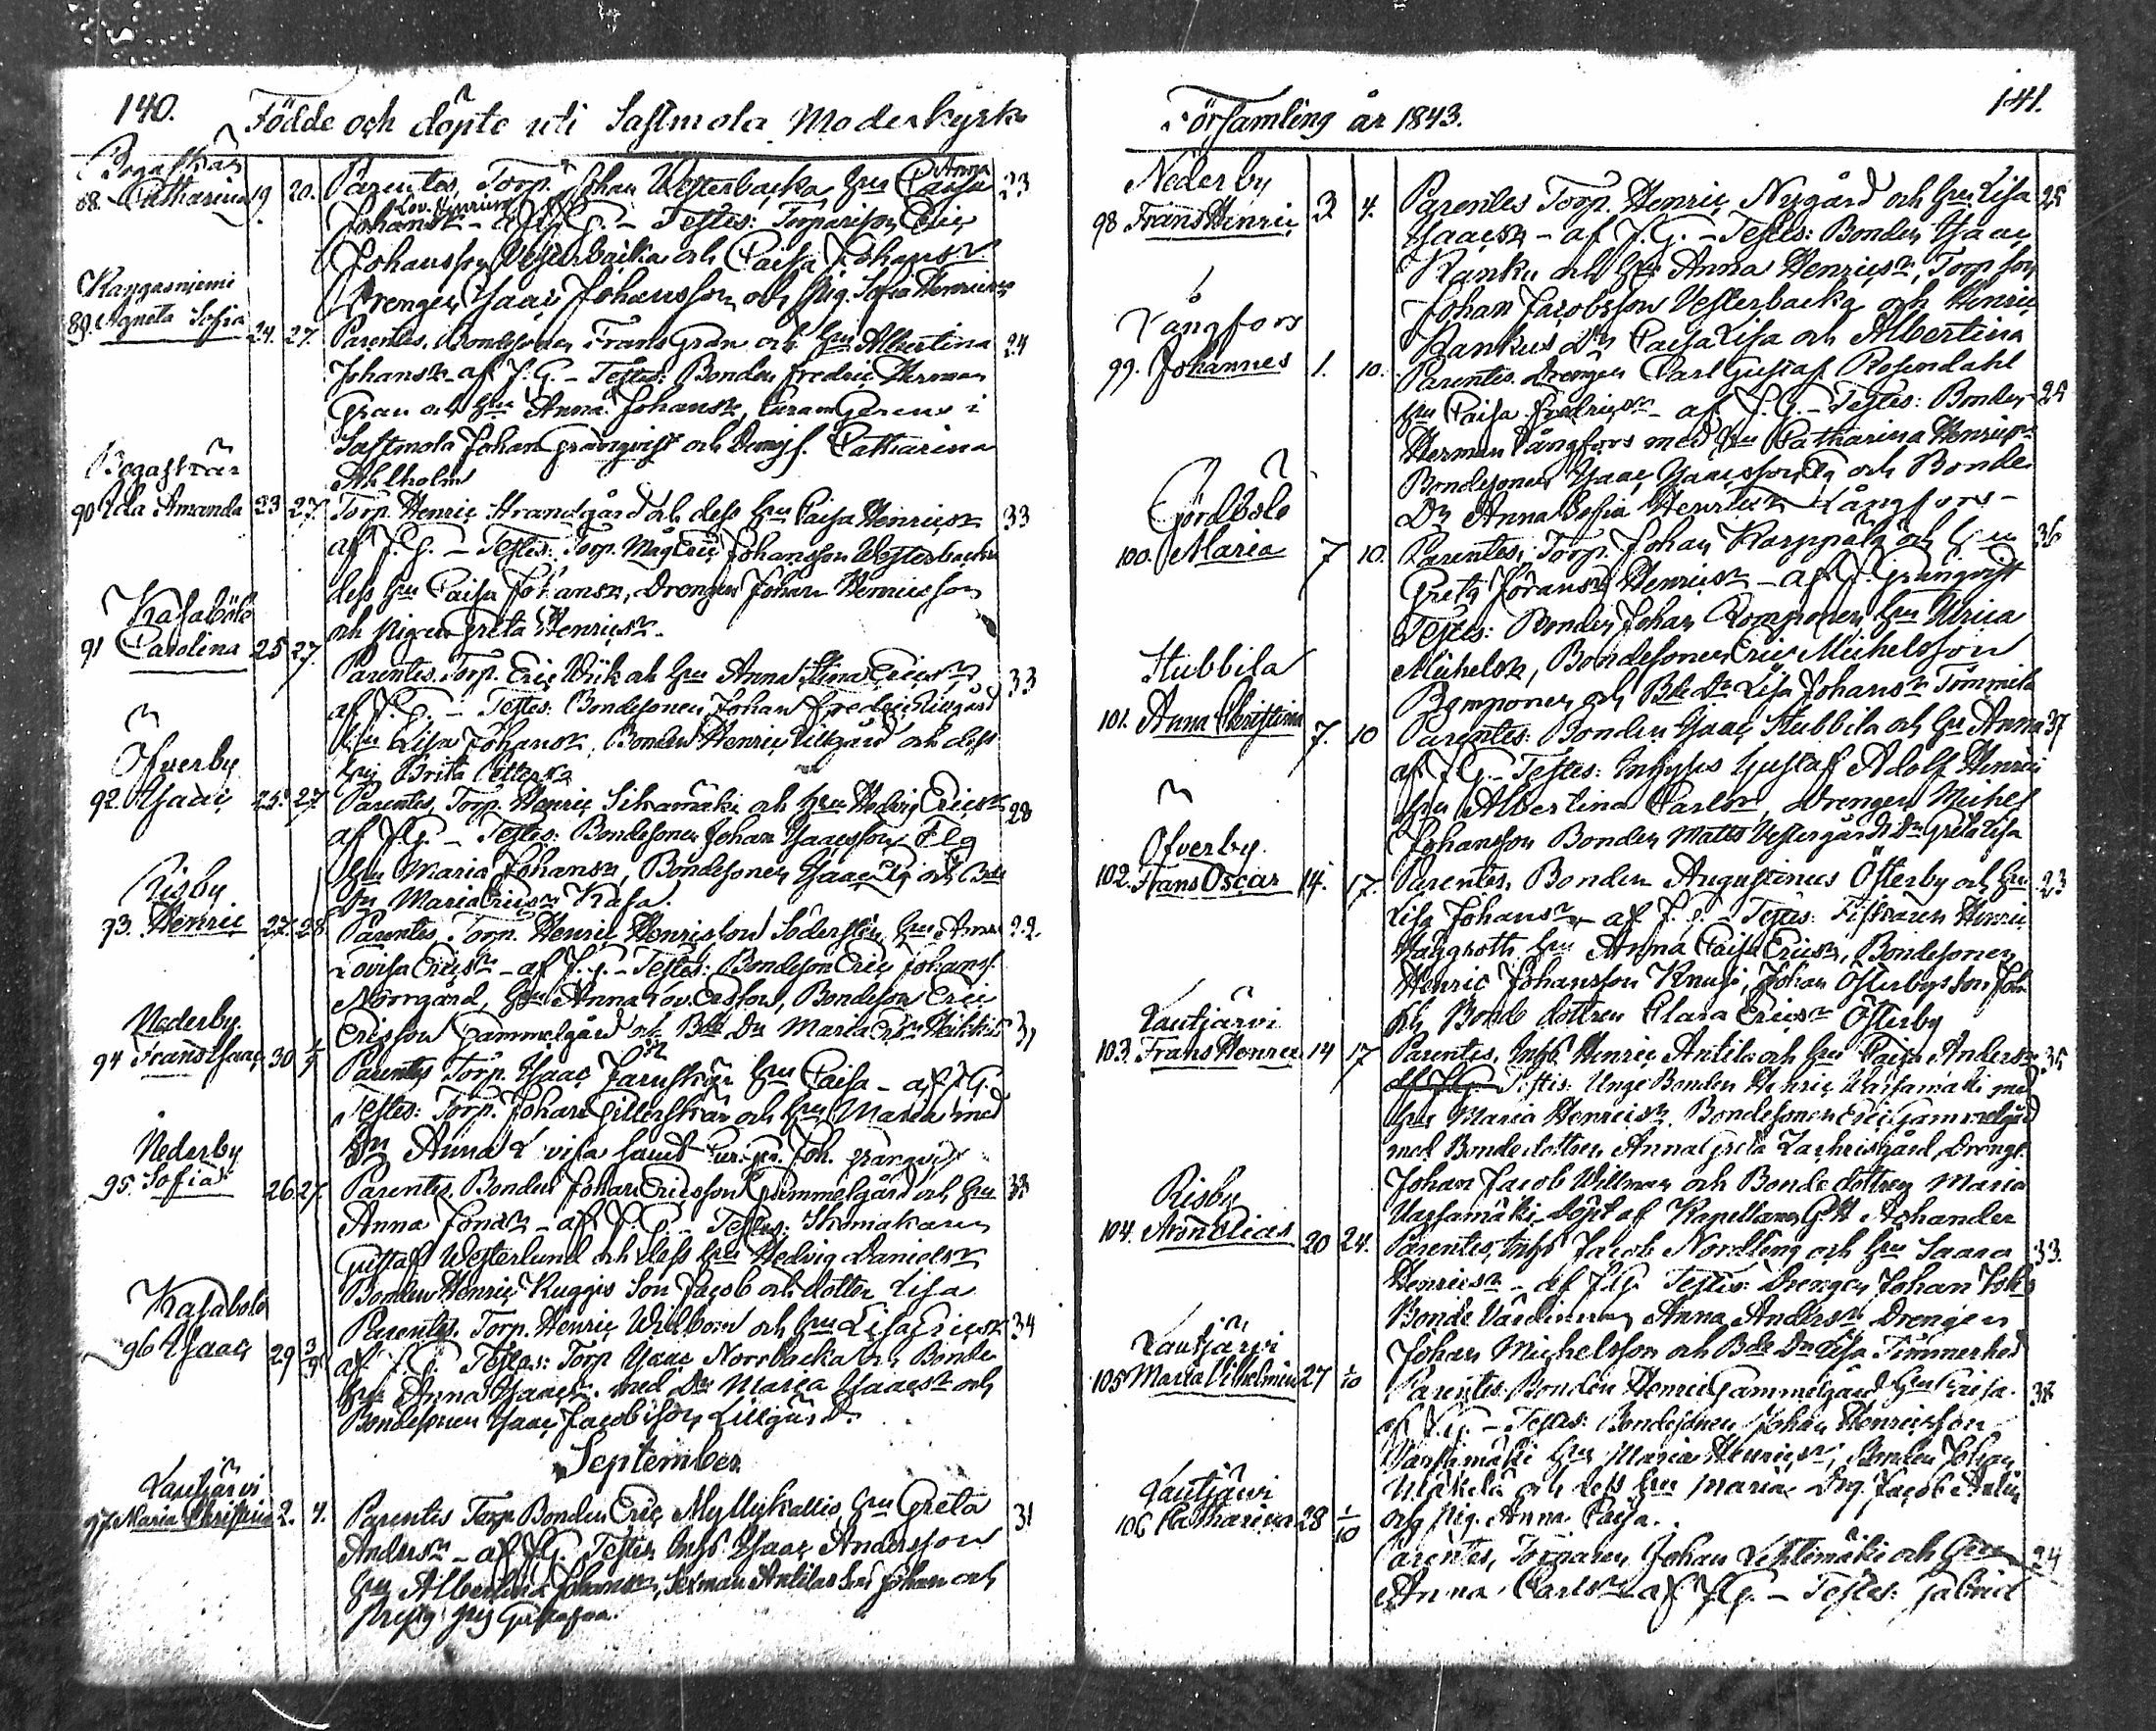 140.
Födde och döpte uti Sastmola Moderkyrko
Bogaskär
88. Catharina 19 20. Parentes, Torp. Johan Westerbacka, hru Anna Caisa 23
Johansr - af J.G. - Testes: Torparson Eric
Johansson Westerbacka och Caisa Johansr
Drengen Isaac Johansson och Pig. Sofia Henricsr
Kangasniemi
89. Agneta Sofia 24. 27. Parentes, Bondesonen Frans Gran och hru Albertina 24
Johansr - af J.G. - Testes: Bonden Fredric Herman
Gran och hru Anna Johansr, Curam Gerens i
Sastmola Johan Granqvist och Demois. Catharina
Ahlholm
Bogaskär
90 Ida Amanda 23 27. Torp. Henric Strandgård och dess hru Caisa Henricsr 33
af J.G. - Testes: Torp. Måg Eric Johansson Westerbacka
dess hru Caisa Johansr, Drengen Johan Henricsson
och pigan Greta Henricsr.
Kasaböle
91 Carolina 25 27. Parentes, Torp. Eric Wiik och hru Anna Stina Ericsr 33
af J.G. - Testes: Bondesonen Johan Fredric Lillgård
hru Lisa Johansr, Bonden Henric Lillgård och dess
hru Brita Pettersr
Öfverby
92. Isaac 25. 27 Parentes, Torp. Henric Silvamäki och hru Hedvig Ericsr 28
af J.G. - Testes: Bondesonen Johan Isaacsson Flg
hru Maria Johansr, Bondesonen Isaac Flg och Bde
Dr Maria Ericsr Kasa.
Risby
93. Henric 27. 28. Parentes, Torp. Henric Henricsson Söderslätt, hru Anna 22.
Lovisa Ericsr - af J.G. - Testes: Bondeson Eric Johanss.
Norrgård, hru Anna Lov. Ersson, Bondeson Eric
Ericsson Gammelgård och Bde Dr Maria Ersr Heikkis
Nederby.
94 Frans Isaac 30 1/9 Parentes Torp. Isaac Jarnskär hru Caisa - af J.G. 31
Testes: Torp. Johan Gillerskär och hru Maria med
Dr Anna Lovisa samt Cur. ge. Joh. Granqvist
Nederby
95. Sofia 26 27. Parentes, Bonden Johan Ericsson Gammelgård och hru 33
Anna Jonaer - af J.G. - Testes: Skomakaren
Gustaf Westerlund och dess hru Hedvig Danielsr
Bonden Henric Kuggis Son Jacob och dotter Lisa
Kasaböle
96 Isaac 29 3/9 Parentes, Torp. Henric Widbom och hru Lisa Ericsr 34
af J.G. Testes: Torp Isaac Norrbacka och Bonde
hru Anna Isaacsr. med Dr Maria Isaacsr och
Bondesonen Isaac Jacobsson Lillgård.
September
Lautjärvi
97. Maria Christina 2. 4. Parentes Torp Bonden Eric Myllykallio, hru Greta 31
Andersr - af J.G. Testes Inhs Isaac Andersson
hru Albertina Johansr, Sexman Antilas Son Johan och
Församling år 1843.
141.
Nederby
98 Frans Henric 3. 4. Parentes Torp. Henric Nygård och hru Lisa 25
Isaacsr - af J.G. - Testes: Bonden Isaac
Kanku och hru Anna Henricsr, Torp son
Johan Jacobsson Vesterbacka och Henric
Kankus Dr Caisa Lisa och Albertina
Långfors
99. Johannes 1. 10. Parentes Drengen Carl Gustaf Rosendahl
hru Caisa Fredricsr - af J.G. - Testes: Bonden 25
Herman Långfors med hru Catharina Henricsr
Bondesonen Isaac Isaacsson Flg och Bonde
Dr Anna Sofia Henricsr Långfors -
Gördböle
100. Maria 7 10. Parentes, Torp. Johan Karppälä och hru 36
Greta Johansr Henricsr - af J. Granqvist
Testes: Bonden Johan Romponen hru Ulrica
Michelsr, Bondesonen Eric Michelsson
Romponen, och Bde Dr Lisa Johansr Tommila
Stubbila
101. Anna Christina 7. 10 Parentes: Bonden Isaac Stubbila och hru Anna 37
af J.G. - Testes: Inhyses Gustaf Adolf Henric
hru Albertina Carlsr, Drengen Michel
Johansson Bonden Matts Vestergårds Dr Greta Lisa
Öfverby.
102. Frans Oscar 14. 17. Parentes, Bonden Augustinus Österby och hru 23
Lisa Johansr - af J.G. - Testes: Fiskaren Henric
Haggroth hru Anna Caisa Ericsr, Bondesonen
Henric Johansson Knuss, Johan Österbys son Joh.
och Bonde dottren Clara Ericsr Österby
Lautjärvi
103. Frans Henric 14 17 Parentes, Inhs Henric Antila och hru Caisa Andersr 35
af J.G. Testes: Unge Bonden Henric Warsamäki med
hru Maria Henricsr, Bondesonen Eric Gammelgård
med Bonde dottren Anna Greta Zachrisgård, Drengen
Johan Jacob Willman och Bonde dottren Maria
Varsamäki. Döpt af Kapellanen G.H. Achander
Risby
104. Aron Elias 20 24. Parentes, Inhs Jacob Nordling och hru Saara 33.
Henricsr - af J.G. Testes: Drengen Johan Joh.
Bonde Värdinnan Anna Andersr Drengen
Johan Michelsson och Bde Dr Lisa Timmerhed
Lautjärvi
105 Maria Vilhelmina 27 1/10 Parentes Bonden Henric Gammelgård hru Caisa. 38
af J.G. - Testes: Bondesonen Johan Henricsson
Varsamäki hru Maria Henricsr, Bonden Johan
Mäkelä och dess hru Maria. Drg. Jacob Antila
och Pig. Anna Caisa.
Lautjärvi
106 Catharina 28 1/10 Parentes, Torparen Johan Lehtimäki och hru 24
Anna Carlsr af J.G. - Testes: Gabriel